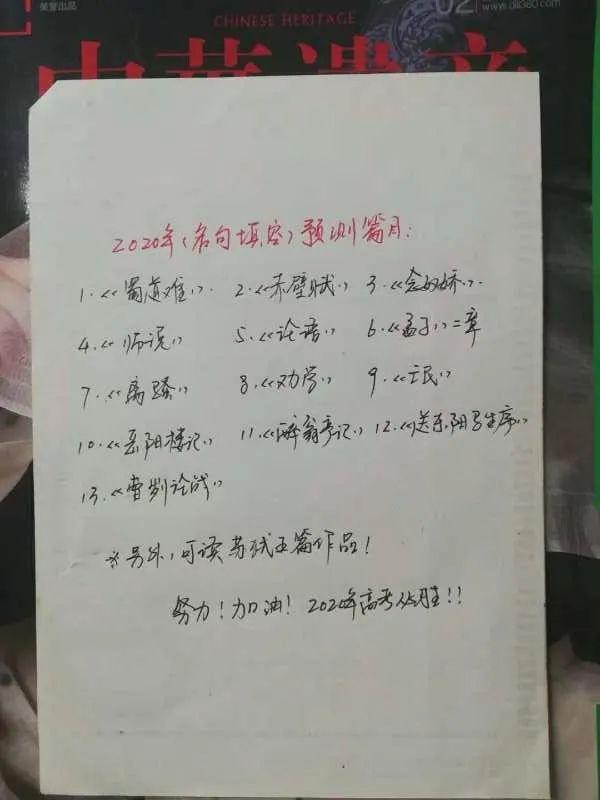 荣誉出品
CHINESE HERITAGE
02
www.dili360.com
中華遺産
2020年(名句填空)预测篇目:
1.《蜀道难》. 2.《赤壁赋》 3.《念奴娇》.
4.《师说》 5.《论语》 6.《孟子》二章
7.《离骚》 8.《劝学》 9.《亡民》
10.《岳阳楼记》 11.《醉翁亭记》 12.《送东阳马生序》
13.《曹刿论战》
※另外,可读苏轼五篇作品!
努力!加油!2020年高考必胜!!